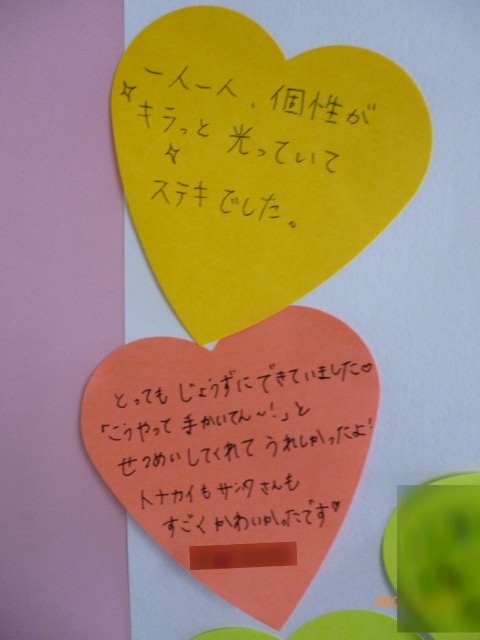 一人一人、個性が
キラっと光っていて
ステキでした。
とってもじょうずにできていました♡
「こうやって手かいてん〜!」と
せつめいしてくれてうれしかったよ!
トナカイもサンタさんも
すごくかわいかったです♡